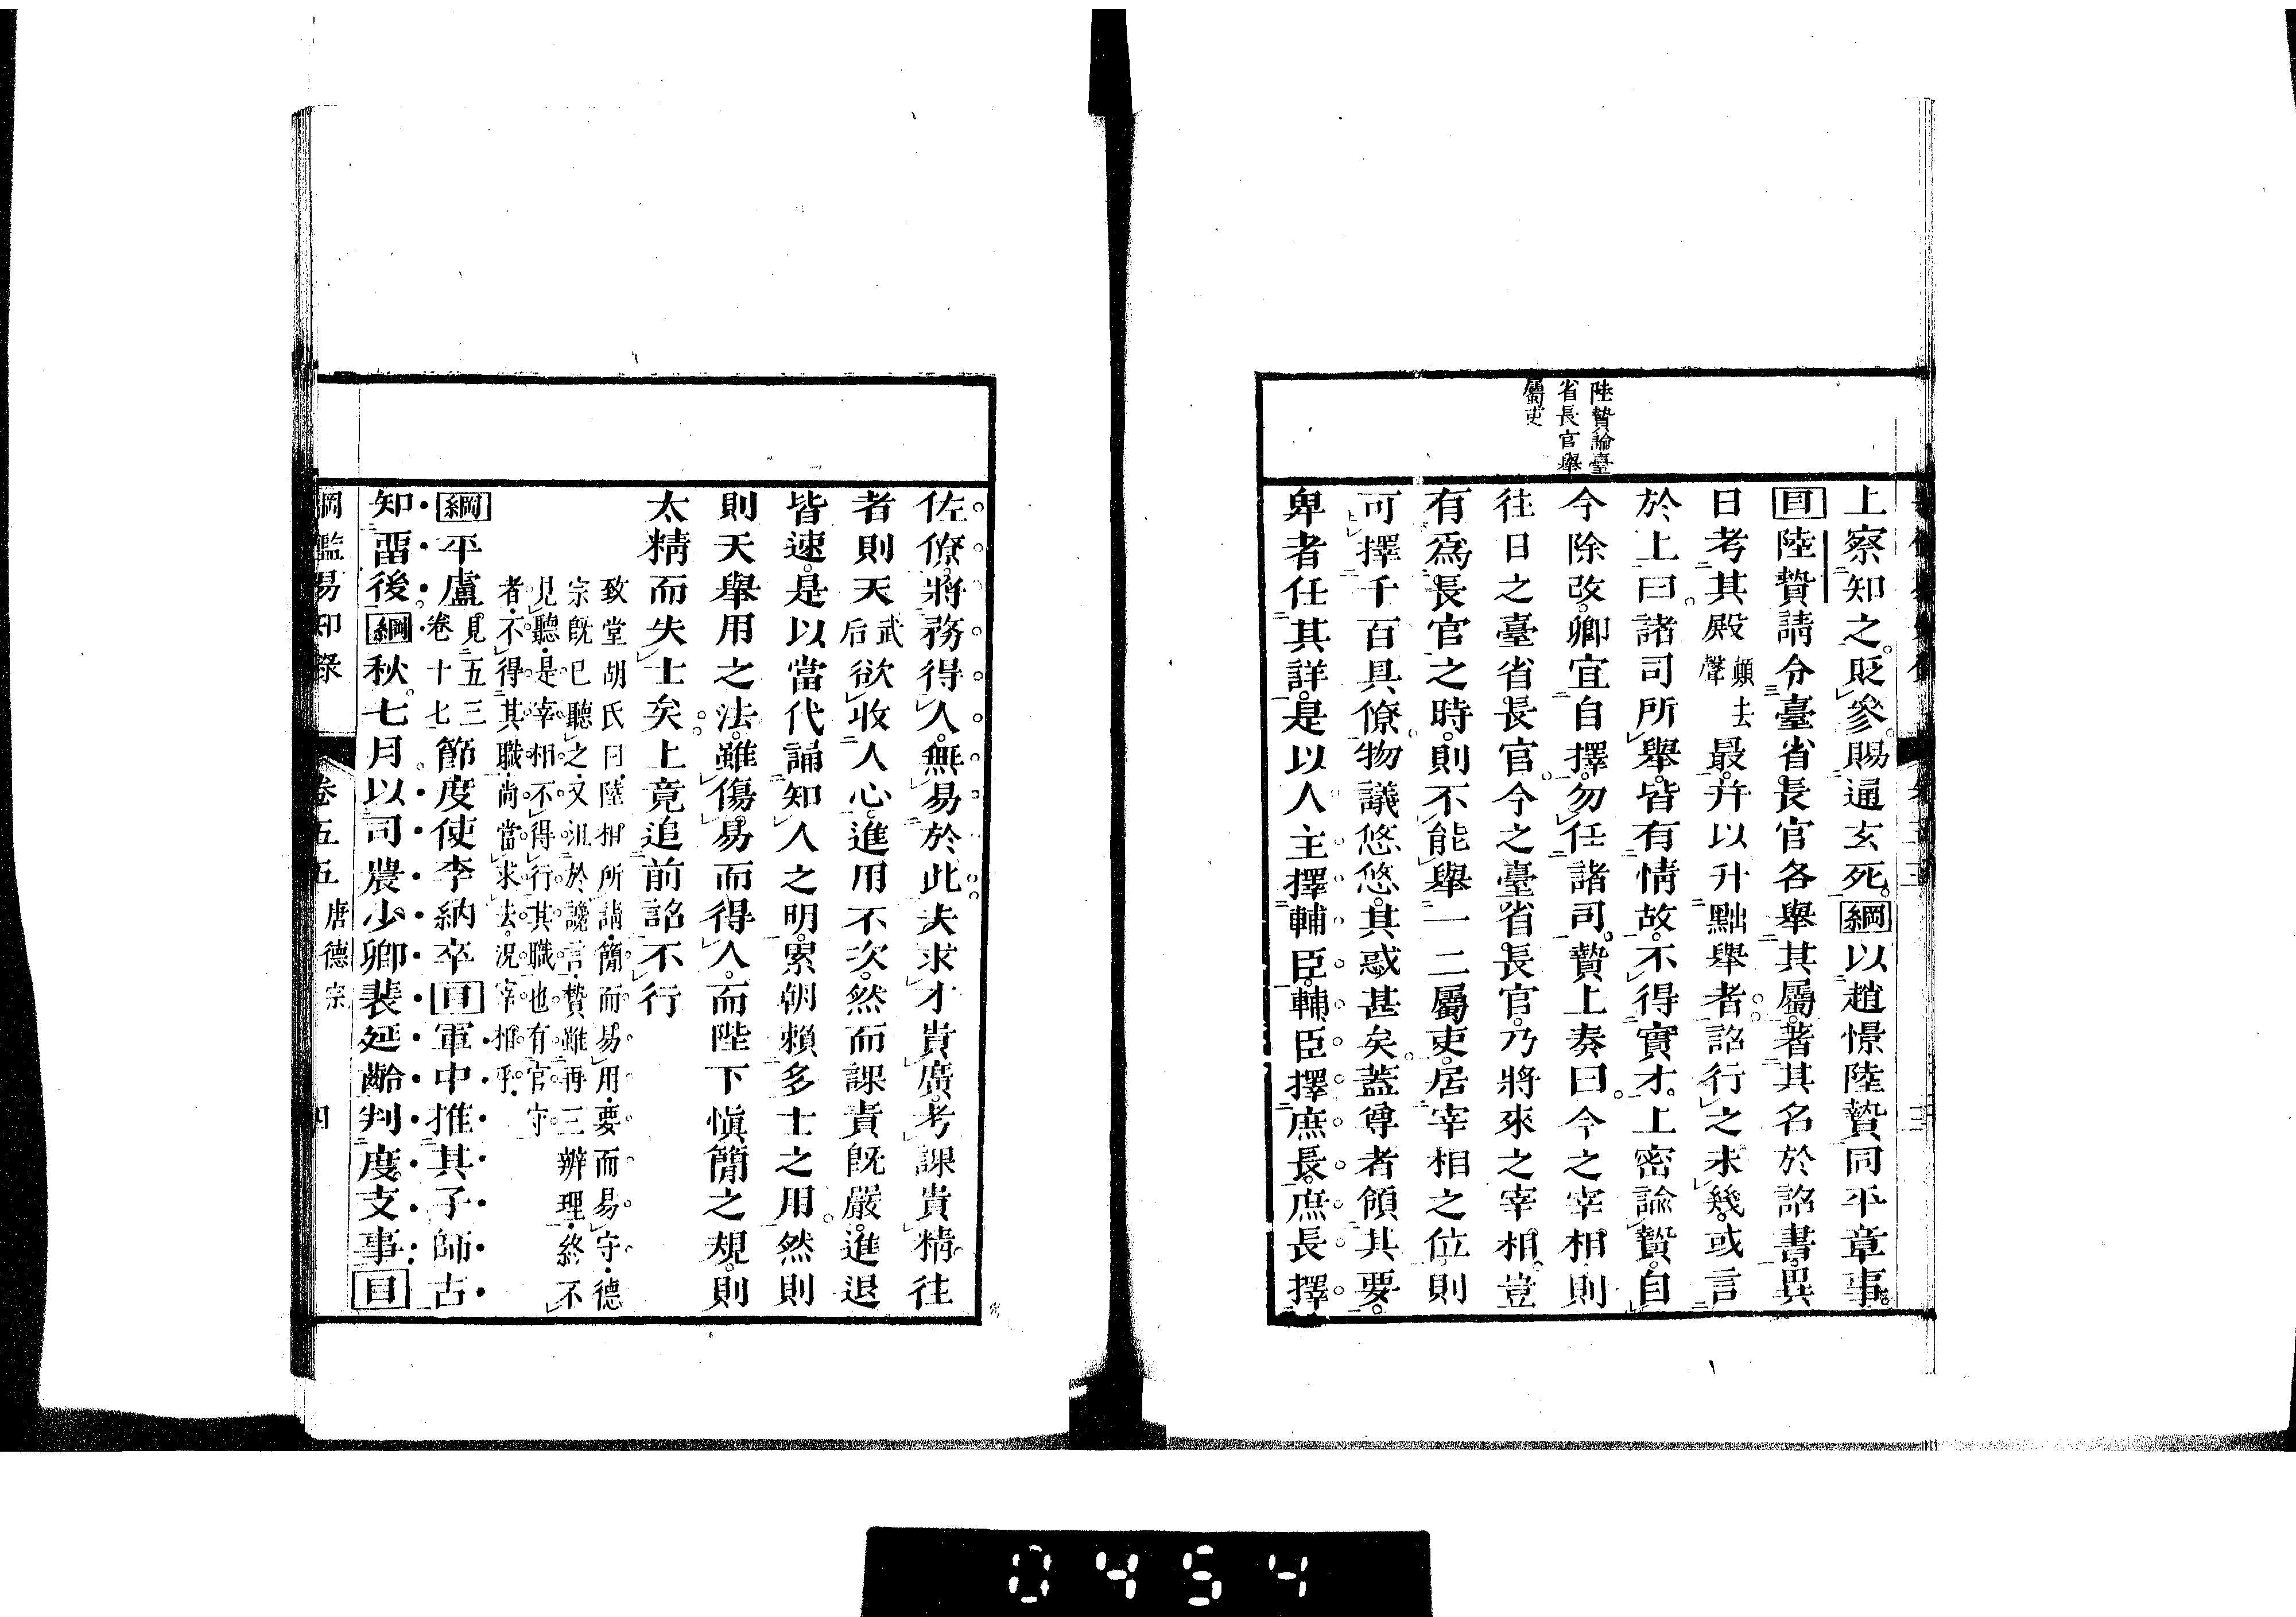 陸贄論臺
省長官舉
屬吏
上察知之。貶參。賜通玄死。綱以趙憬陸贄同平章事。
目陸贄請令臺省長官各舉其屬。著其名於詔書。異
日考其殿顚去聲最。幷以升黜舉者。詔行之。未幾。或言
於上曰。諸司所舉。皆有情故。不得實才。上密諭贄。自
今除改。卿宜自擇。勿任諸司。贄上奏曰。今之宰相。則
往日之臺省長官。今之臺省長官。乃將來之宰相。豈
有爲長官之時。則不能舉一二屬吏。居宰相之位。則
可擇千百具僚。物議悠悠。其惑甚矣。蓋尊者領其要。
卑者任其詳。是以人主擇輔臣。輔臣擇庶長。庶長擇
佐僚。將務得人。無易於此。夫求才貴廣。考課貴精。往
者則天武后欲收人心。進用不次。然而課責既嚴。進退
皆速。是以當代誦知人之明。累朝賴多士之用。然則
則天舉用之法。雖傷易而得人。而陛下愼簡之規。則
太精而失士矣。上竟追前詔不行
致堂胡氏曰。陸相所請。簡而易用。要而易守。德
宗既已聽之。又沮於讒言。贄雖再三辨理。終不
見聽。是宰相不得行其職也。有官守
者。不得其職。尚當求去。況宰相乎。
綱平盧。見五三卷十七節度使李納卒。目軍中推其子師古
知畱後。綱秋。七月。以司農少卿裴延齡判度支事。目
綱鑑易知錄 卷五五 唐德宗 四
0454